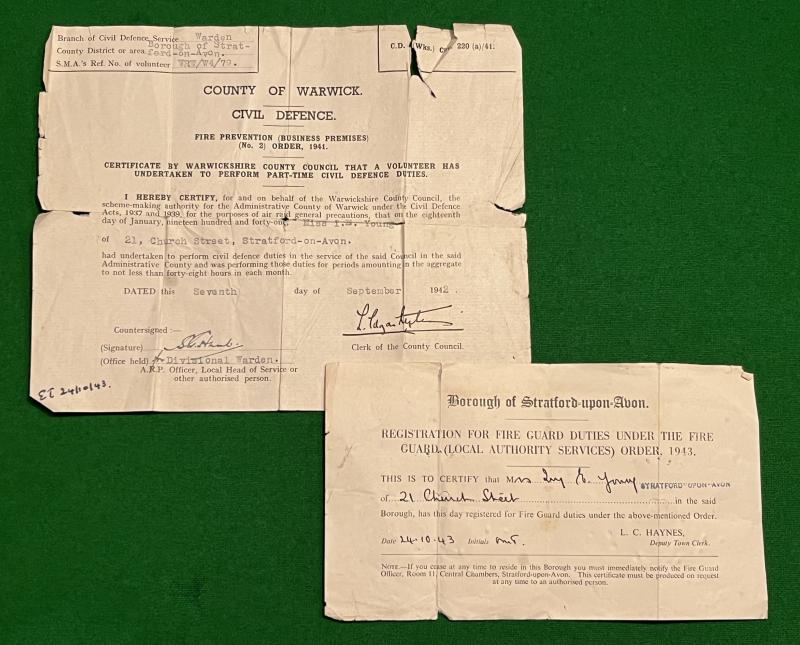 Branch of Civil Defence Service Warden
County District or area Borough of Strat-
ford-on-Avon.
S.M.A.'s Ref. No. of volunteer WRW/W4/79.
C.D. (Wks.) 220 (a)/41.
COUNTY OF WARWICK.
CIVIL DEFENCE.
FIRE PREVENTION (BUSINESS PREMISES)
(No. 2) ORDER, 1941.
CERTIFICATE BY WARWICKSHIRE COUNTY COUNCIL THAT A VOLUNTEER HAS
UNDERTAKEN TO PERFORM PART-TIME CIVIL DEFENCE DUTIES.
I HEREBY CERTIFY, for and on behalf of the Warwickshire County Council, the
scheme-making authority for the Administrative County of Warwick under the Civil Defence
Acts, 1937 and 1939, for the purposes of air raid general precautions, that on the eighteenth
day of January, nineteen hundred and forty-one, Miss I.E. Young
of 21, Church Street, Stratford-on-Avon.
had undertaken to perform civil defence duties in the service of the said Council in the said
Administrative County and was performing those duties for periods amounting in the aggregate
to not less than forty-eight hours in each month.
DATED this Seventh day of September 1942.
Countersigned :—
(Signature)
(Office held) Divisional Warden.
Clerk of the County Council.
A.R.P. Officer, Local Head of Service or
other authorised person.
24/10/43.
Borough of Stratford-upon-Avon.
REGISTRATION FOR FIRE GUARD DUTIES UNDER THE FIRE
GUARD (LOCAL AUTHORITY SERVICES) ORDER, 1943.
THIS IS TO CERTIFY that Mrs Ivy E. Young STRATFORD-UPON-AVON
of 21 Church Street in the said
Borough, has this day registered for Fire Guard duties under the above-mentioned Order.
L. C. HAYNES,
Date 24.10.43 Initials
Deputy Town Clerk.
NOTE.—If you cease at any time to reside in this Borough you must immediately notify the Fire Guard
Officer, Room 11, Central Chambers, Stratford-upon-Avon. This certificate must be produced on request
at any time to an authorised person.